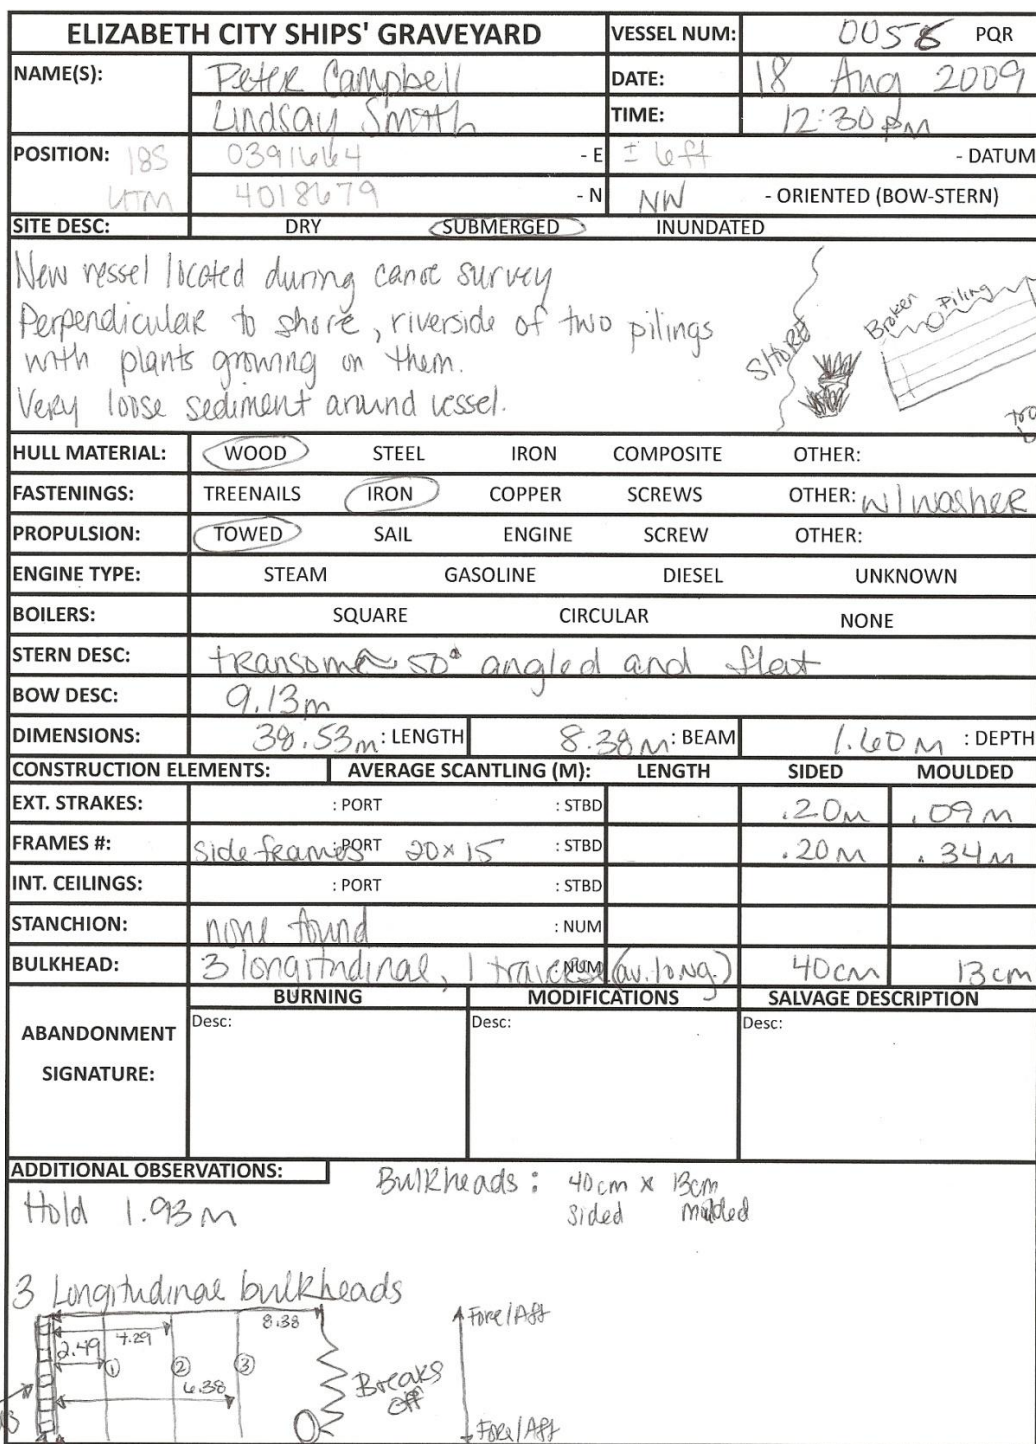 ELIZABETH CITY SHIPS' GRAVEYARD VESSEL NUM: 0058 PQR
NAME(S): Peter Campbell DATE: 18 Aug 2009
Lindsay Smith TIME: 12:30 pm
POSITION: 18S 0391664 - E ± 6ft - DATUM
UTM 4018679 - N NW - ORIENTED (BOW-STERN)
SITE DESC: DRY SUBMERGED INUNDATED
New vessel located during canoe survey
Perpendicular to shore, riverside of two pilings
with plants growing on them.
Very loose sediment around vessel.
SHORE
Broken Piling
HULL MATERIAL: WOOD STEEL IRON COMPOSITE OTHER:
FASTENINGS: TREENAILS IRON COPPER SCREWS OTHER: w/washer
PROPULSION: TOWED SAIL ENGINE SCREW OTHER:
ENGINE TYPE: STEAM GASOLINE DIESEL UNKNOWN
BOILERS: SQUARE CIRCULAR NONE
STERN DESC: transom ~ 50° angled and flat
BOW DESC: 9.13m
DIMENSIONS: 38.53m : LENGTH 8.38m : BEAM 1.60m : DEPTH
CONSTRUCTION ELEMENTS: AVERAGE SCANTLING (M): LENGTH SIDED MOULDED
EXT. STRAKES: : PORT : STBD .20m .09m
FRAMES #: side frames : PORT 20x15 : STBD .20m .34m
INT. CEILINGS: : PORT : STBD
STANCHION: none found : NUM
BULKHEAD: 3 longitudinal, 1 : NUM (av. long.) 40cm 13cm
ABANDONMENT SIGNATURE: BURNING MODIFICATIONS SALVAGE DESCRIPTION
Desc: Desc: Desc:
ADDITIONAL OBSERVATIONS:
Bulkheads: 40cm x 13cm
sided molded
Hold 1.93m
3 Longitudinal bulkheads
8.38
4.29
2.49
① ② ③
6.38
Breaks off
Fore/Aft
Fore/Aft